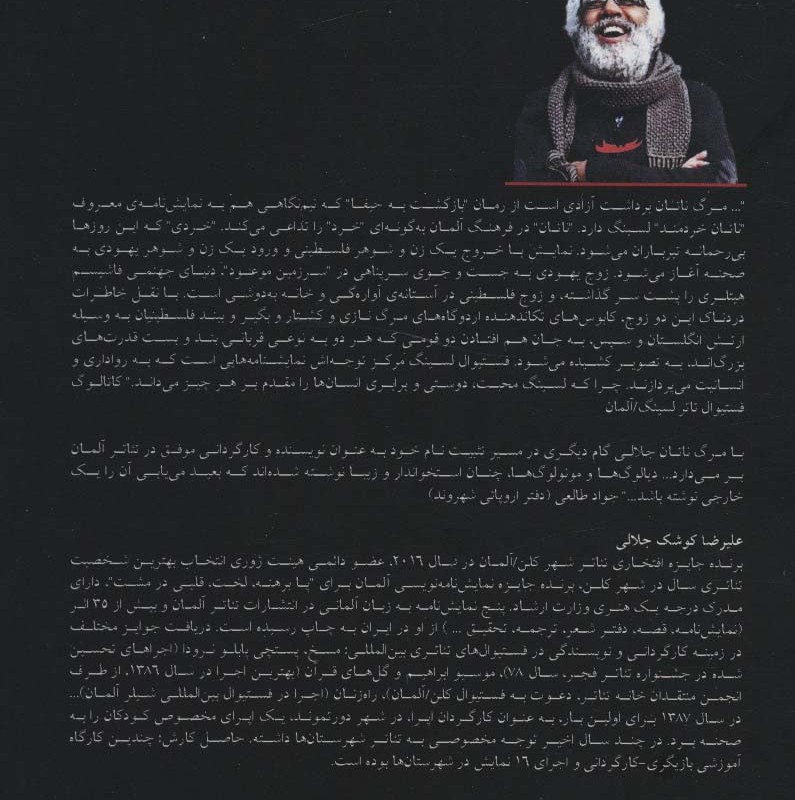 "... مرگ ناتان برداشت آزادی است از رمان "بازگشت به حیفا" که نیم‌نگاهی هم به نمایش‌نامه‌ی معروف
"ناتان خردمند" لسینگ دارد. "ناتان" در فرهنگ آلمان به‌گونه‌ای "خرد" را تداعی می‌کند. "خردی" که این روزها
بی‌رحمانه تیرباران می‌شود. نمایش با خروج یک زن و شوهر فلسطینی و ورود یک زن و شوهر یهودی به
صحنه آغاز می‌شود. زوج یهودی به جست و جوی سرپناهی در "سرزمین موعود"، دنیای جهنمی فاشیسم
هیتلری را پشت سر گذاشته، و زوج فلسطینی در آستانه‌ی آواره‌گی و خانه به‌دوشی است. با نقل خاطرات
دردناک این دو زوج، کابوس‌های تکاندهنده اردوگاه‌های مرگ نازی و کشتار و بگیر و ببند فلسطینیان به وسیله
ارتش انگلستان و سپس، به جان هم افتادن دو قومی که هر دو به نوعی قربانی بند و بست قدرت‌های
بزرگ‌اند، به تصویر کشیده می‌شود. فستیوال لسینگ مرکز توجه‌اش نمایشنامه‌هایی است که به رواداری و
انسانیت می‌پردازند. چرا که لسینگ محبت، دوستی و برابری انسان‌ها را مقدم بر هر چیز می‌داند." کاتالوگ
فستیوال تاتر لسینگ/آلمان
با مرگ ناتان جلالی گام دیگری در مسیر تثبیت نام خود به عنوان نویسنده و کارگردانی موفق در تئاتر آلمان
بر می‌دارد... دیالوگ‌ها و مونولوگ‌ها، چنان استخواندار و زیبا نوشته شده‌اند که بعید می‌یابی آن را یک
خارجی نوشته باشد..." جواد طالعی (دفتر اروپائی شهروند)
علیرضا کوشک جلالی
برنده جایزه افتخاری تئاتر شهر کلن/آلمان در سال ۲۰۱۶، عضو دائمی هیئت ژوری انتخاب بهترین شخصیت
تئاتری سال در شهر کلن، برنده جایزه نمایش‌نامه‌نویسی آلمان برای "پا برهنه، لخت، قلبی در مشت"، دارای
مدرک درجه یک هنری وزارت ارشاد. پنج نمایش‌نامه به زبان آلمانی در انتشارات تئاتر آلمان و بیش از ۳۵ اثر
(نمایش‌نامه، قصه، دفتر شعر، ترجمه، تحقیق ... ) از او در ایران به چاپ رسیده است. دریافت جوایز مختلف
در زمینه کارگردانی و نویسندگی در فستیوال‌های تئاتری بین‌المللی: مسخ، پستچی پابلو نرودا (اجراهای تحسین
شده در جشنواره تئاتر فجر، سال ۷۸)، موسیو ابراهیم و گل‌های قرآن (بهترین اجرا در سال ۱۳۸۶، از طرف
انجمن منتقدان خانه تئاتر، دعوت به فستیوال کلن/آلمان)، راه‌زنان (اجرا در فستیوال بین‌المللی شیلر آلمان)...
در سال ۱۳۸۷ برای اولین بار، به عنوان کارگردان اپرا، در شهر دورتموند، یک اپرای مخصوص کودکان را به
صحنه برد. در چند سال اخیر توجه مخصوصی به تئاتر شهرستان‌ها داشته. حاصل کارش: چندین کارگاه
آموزشی بازیگری-کارگردانی و اجرای ۱۶ نمایش در شهرستان‌ها بوده است.